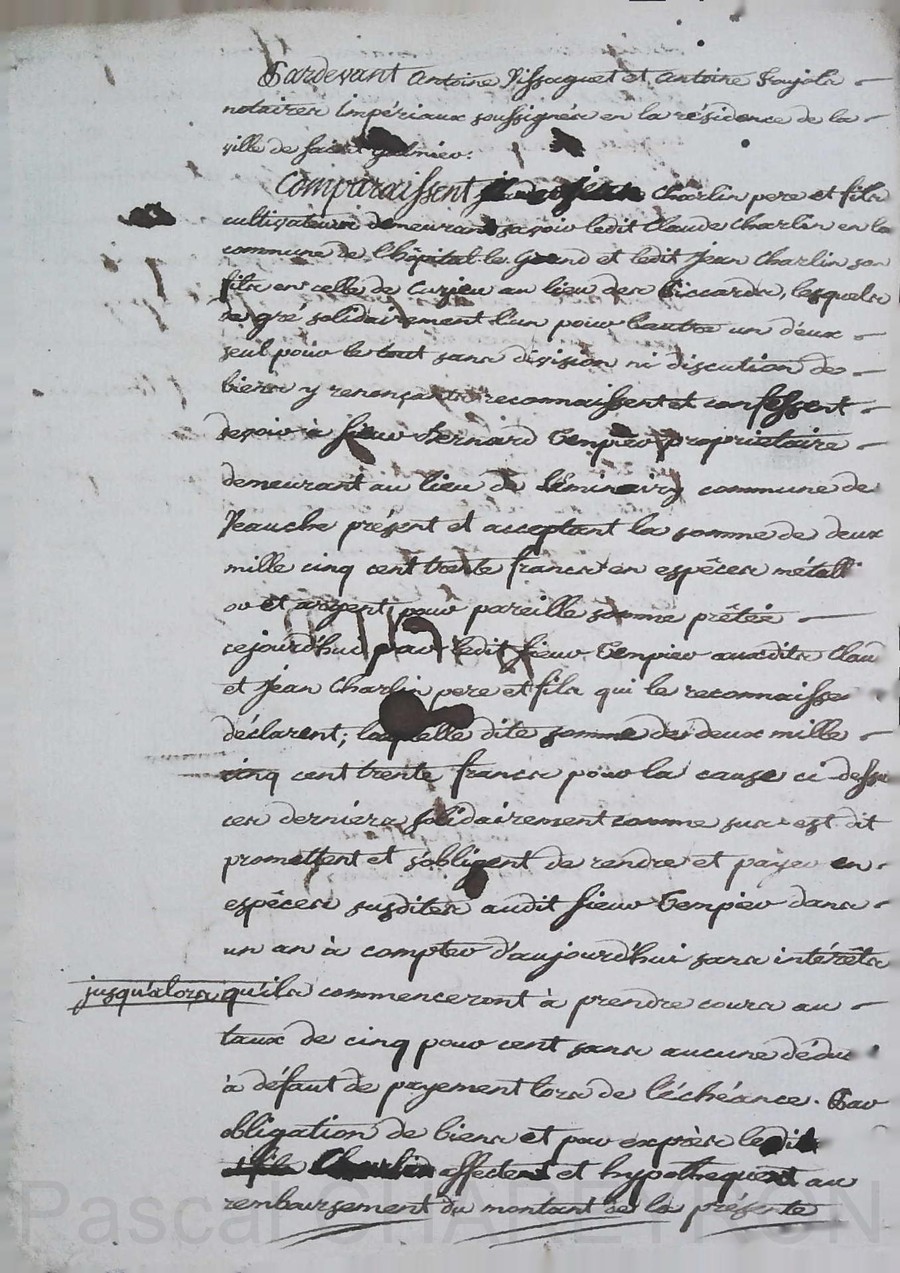 Pardevant Antoine Vissaguet et Antoine Soujols
notaires impériaux soussignés en la résidence de la
ville de saint galmier:
Comparaissent Charlin pere et fils
cultivateurs demeurant savoir ledit Claude Charlin en la
commune de l'hôpital-le-Grand et ledit Jean Charlin son
fils en celle de Curieu au lieu des Piccards, lesquels
de gré solidairement l'un pour l'autre un d'eux
seul pour le tout sans division ni discution de
biens y renonçants reconnaissent et confessent
devoir à sieur Bernard Tempier propriétaire
demeurant au lieu de commune de
Veauche présent et acceptant la somme de deux
mille cinq cent trente francs en espêces métall
or et argent, pour pareille somme prêtée
cejourd'hui par ledit sieur Tempier auxdits Clau
et Jean Charlin pere et fils qui le reconnaisse
déclarent; laquelle dite somme de deux mille
cinq cent trente francs pour la cause ci-dessu
ces derniers solidairement comme sus est dit
promettent et s'obligent de rendre et payer en
espêces susdites audit sieur Tempier dans
un an à compter d'aujourd'hui sans intérêts
jusqu'alors qu'ils commenceront à prendre cours au
taux de cinq pour cent sans aucune dédu
à défaut de payement lors de l'échéance. Par
obligation de biens et par exprès ledit
affectent et hypothequent au
remboursement du montant de la présente
Pascal CHAREYRON